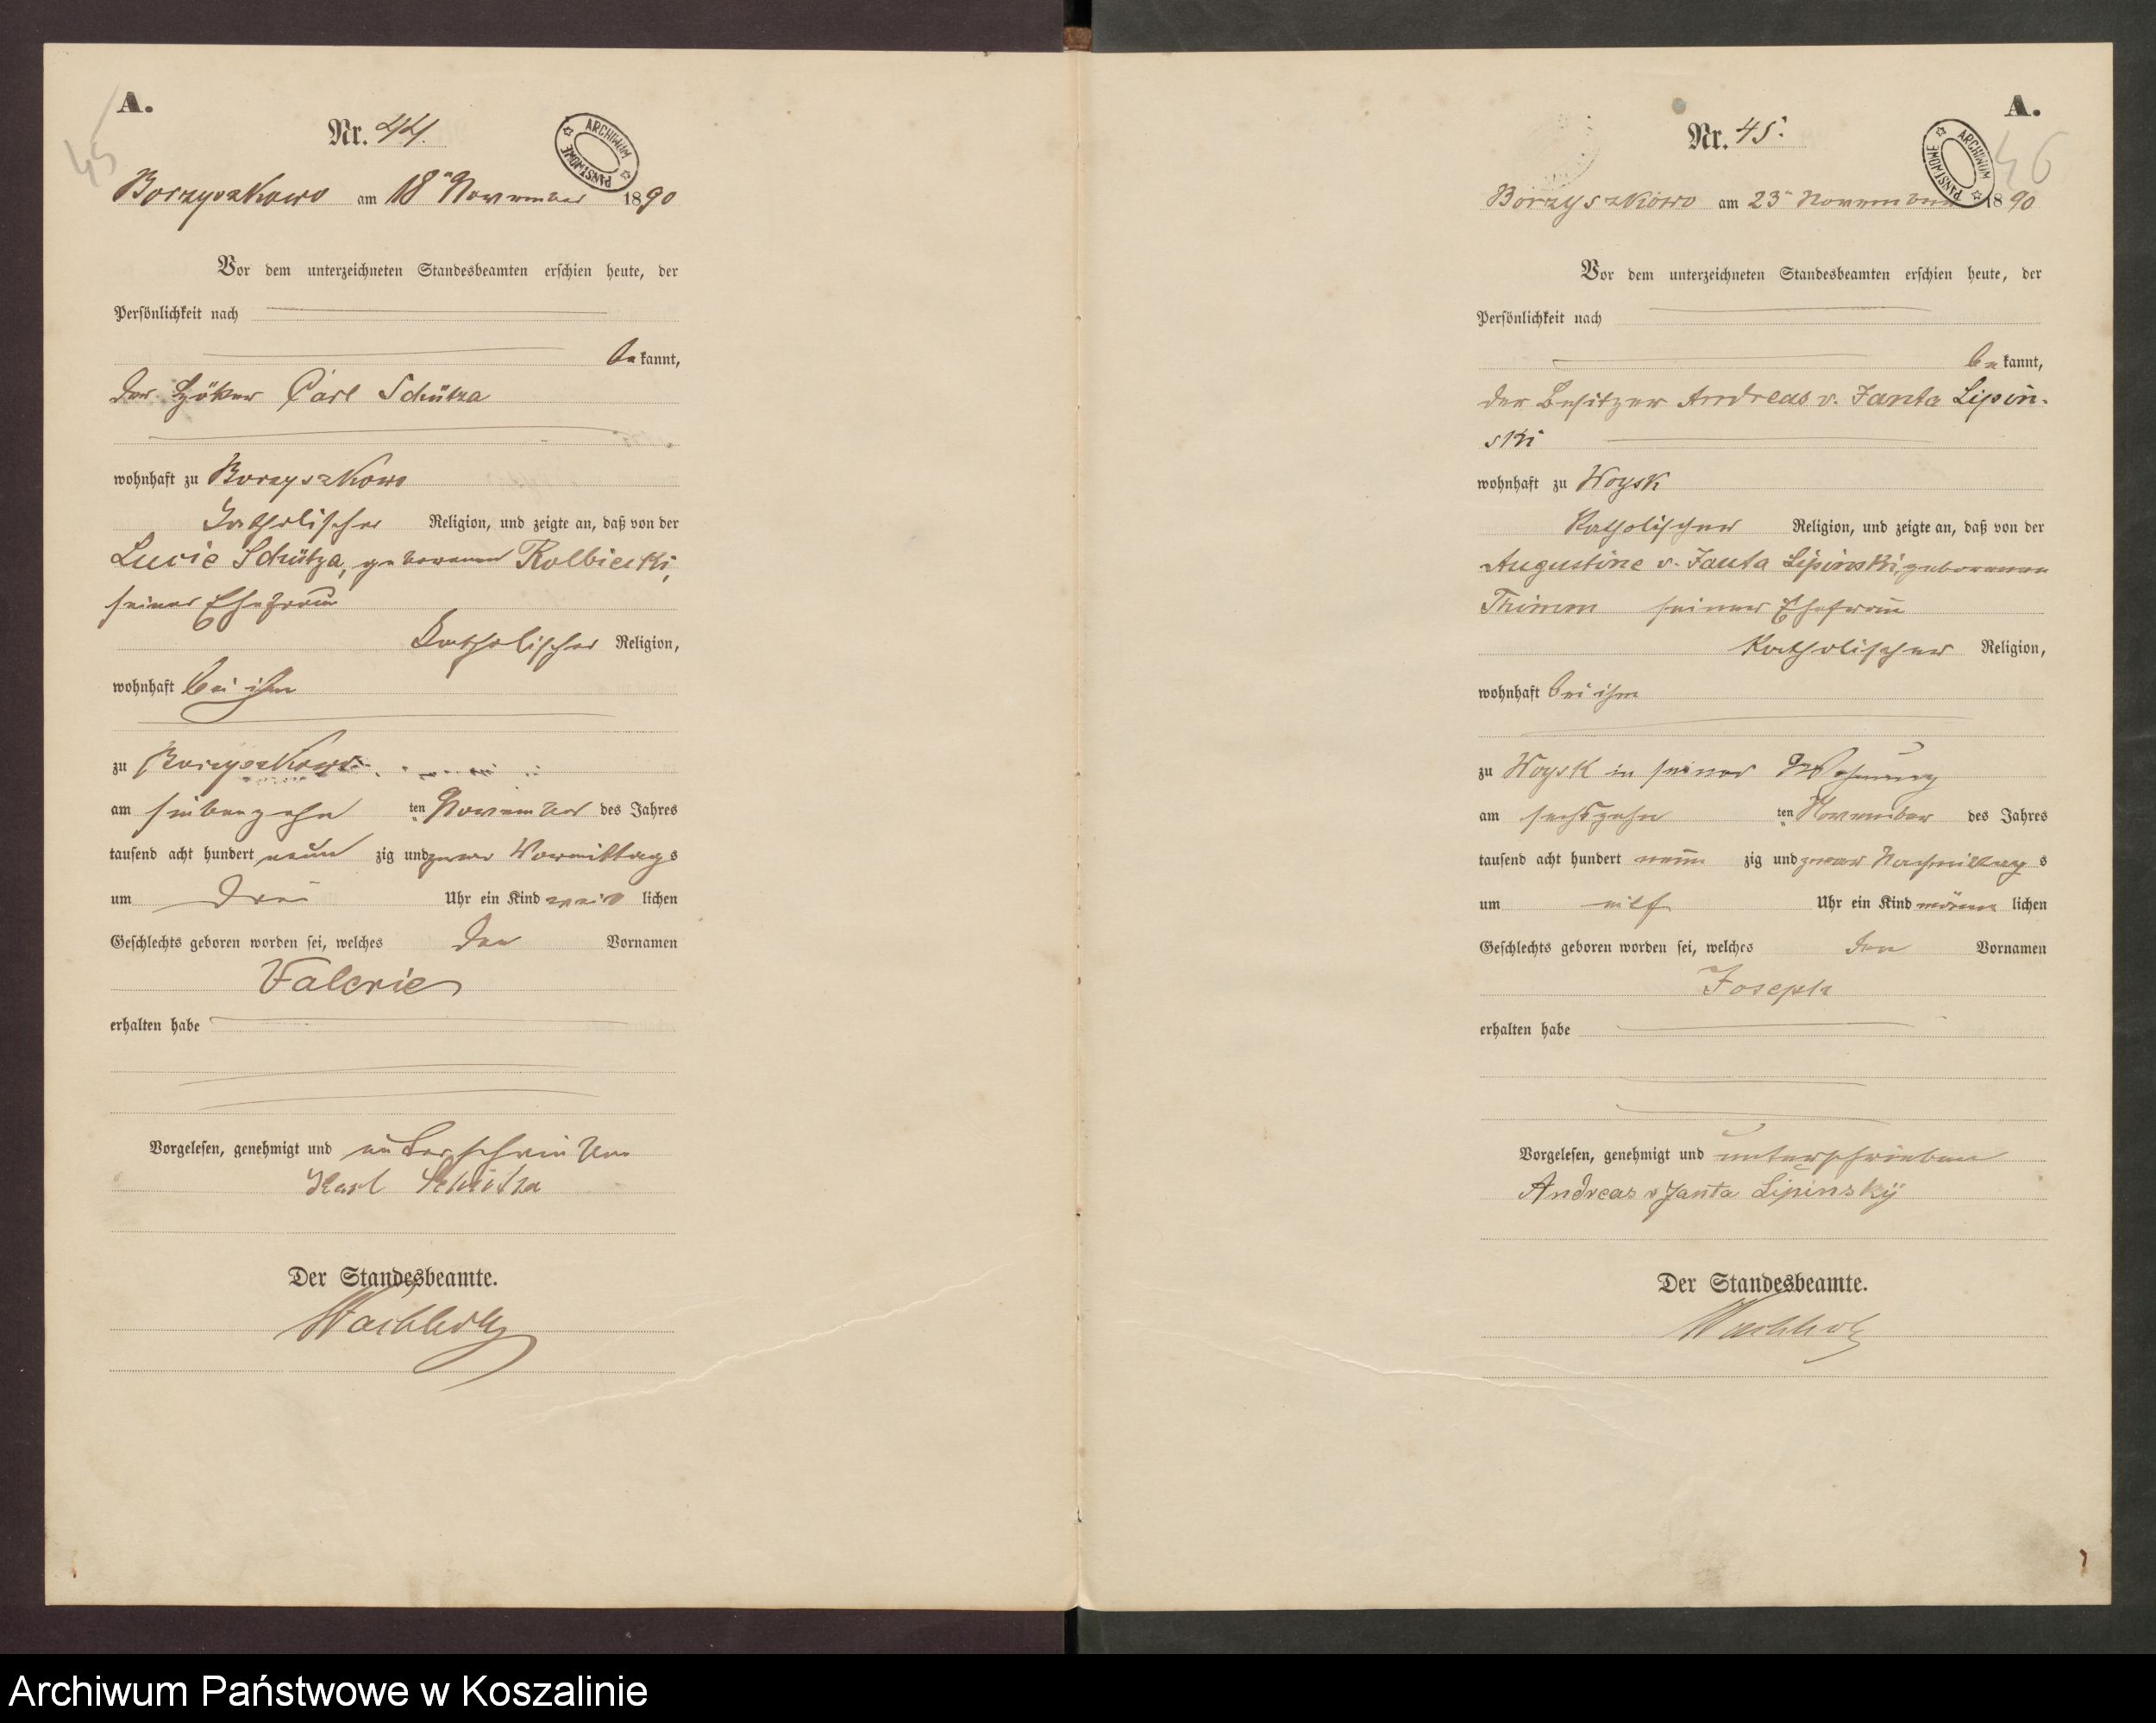 A.
45
Nr. 44.
ARCHIWUM PAŃSTWOWE
Borzyszkowo am 18ten November 1890
Vor dem unterzeichneten Standesbeamten erschien heute, der
Persönlichkeit nach
bekannt,
der Höker Carl Schütza
wohnhaft zu Borzyszkowo
katholischer Religion, und zeigte an, daß von der
Lucie Schütza, geborenen Kolbiecki,
seiner Ehefrau
katholischer Religion,
wohnhaft bei ihm
zu Borzyszkowo
am siebenzehn ten November des Jahres
tausend acht hundert neun zig und zwar Vormittags
um drei Uhr ein Kind weib lichen
Geschlechts geboren worden sei, welches den Vornamen
Valerie
erhalten habe
Vorgelesen, genehmigt und unterschrieben
Karl Schütza
Der Standesbeamte.
Wachholz
A.
46
Nr. 45.
ARCHIWUM PAŃSTWOWE
Borzyszkowo am 23ten November 1890
Vor dem unterzeichneten Standesbeamten erschien heute, der
Persönlichkeit nach
bekannt,
der Besitzer Andreas v. Janta Lipin-
ski
wohnhaft zu Woysk
katholischer Religion, und zeigte an, daß von der
Augustine v. Janta Lipinski, geborenen
Thimm seiner Ehefrau
katholischer Religion,
wohnhaft bei ihm
zu Woysk in seiner Wohnung
am sechszehn ten November des Jahres
tausend acht hundert neun zig und zwar Nachmittag s
um elf Uhr ein Kind männ lichen
Geschlechts geboren worden sei, welches den Vornamen
Joseph
erhalten habe
Vorgelesen, genehmigt und unterschrieben
Andreas v Janta Lipinsky
Der Standesbeamte.
Wachholz
Archiwum Państwowe w Koszalinie